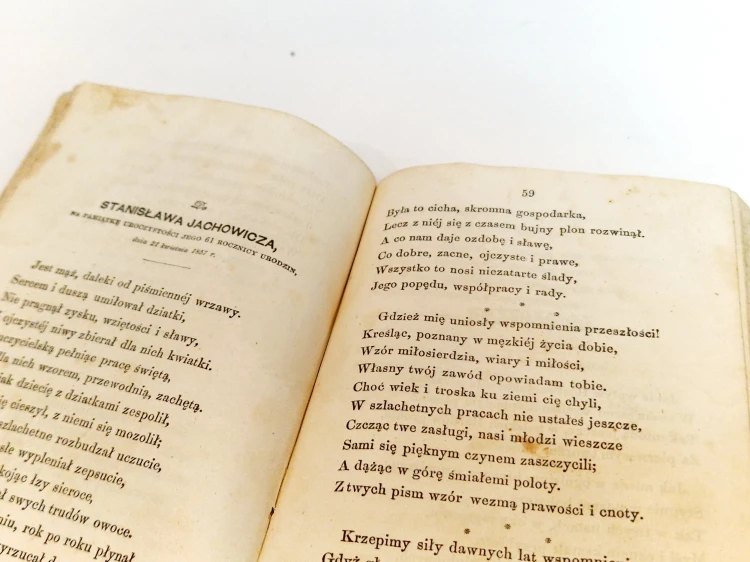 Do
STANISŁAWA JACHOWICZA,
NA PAMIĄTKĘ UROCZYSTOŚCI JEGO 61 ROCZNICY URODZIN,
dnia 22 kwietnia 1857 r.
Jest mąż, daleki od piśmiennéj wrzawy.
Sercem i duszą umiłował dziatki,
Nie pragnął zysku, wziętości i sławy,
ojczystéj niwy zbierał dla nich kwiatki.
pełniąc pracę świętą,
dla nich wzorem, przewodnią, zachętą.
jak dziecię z dziatkami zespolił,
cieszył, z niemi się mozolił;
szlachetne rozbudzał uczucie,
wypleniał zepsucie,
łzy sieroce,
swych trudów owoce.
rok po roku płynął
59
Była to cicha, skromna gospodarka,
Lecz z niéj się z czasem bujny plon rozwinął.
A co nam daje ozdobę i sławę,
Co dobre, zacne, ojczyste i prawe,
Wszystko to nosi niezatarte ślady,
Jego popędu, współpracy i rady.
* * *
Gdzież mię uniosły wspomnienia przeszłości!
Kreśląc, poznany w męzkiéj życia dobie,
Wzór miłosierdzia, wiary i miłości,
Własny twój zawód opowiadam tobie.
Choć wiek i troska ku ziemi cię chyli,
W szlachetnych pracach nie ustałeś jeszcze,
Czcząc twe zasługi, nasi młodzi wieszcze
Sami się pięknym czynem zaszczycili;
A dążąc w górę śmiałemi poloty.
Z twych pism wzór wezmą prawości i cnoty.
* * *
Krzepimy siły dawnych lat
Gdyż